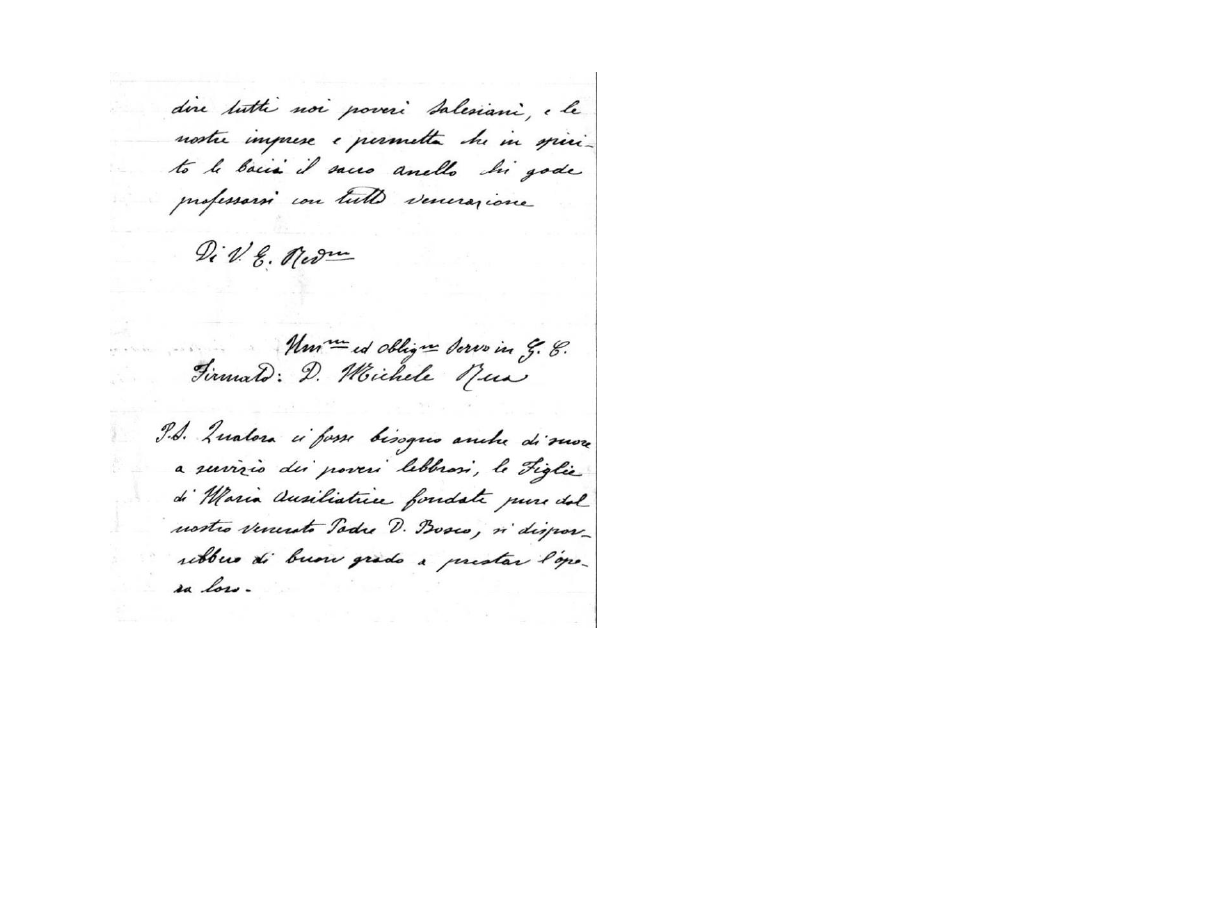 dire tutti noi poveri Salesiani, e le
nostre imprese e permetta che in spiri-
to le bacia il sacro anello chi gode
professarsi con tutto venerazione
Di V. E. Revma
Umm̅o̅ ed obligmo Servo in G. C.
Firmato: D. Michele Rua
P.S. Qualora ci fosse bisogno anche di suore
a servizio dei poveri lebbrosi, le Figlie
di Maria Ausiliatrice fondate pure dal
nostro venerato Padre D. Bosco, si dispor-
rebbero di buon grado a prestar l'ope-
ra loro.